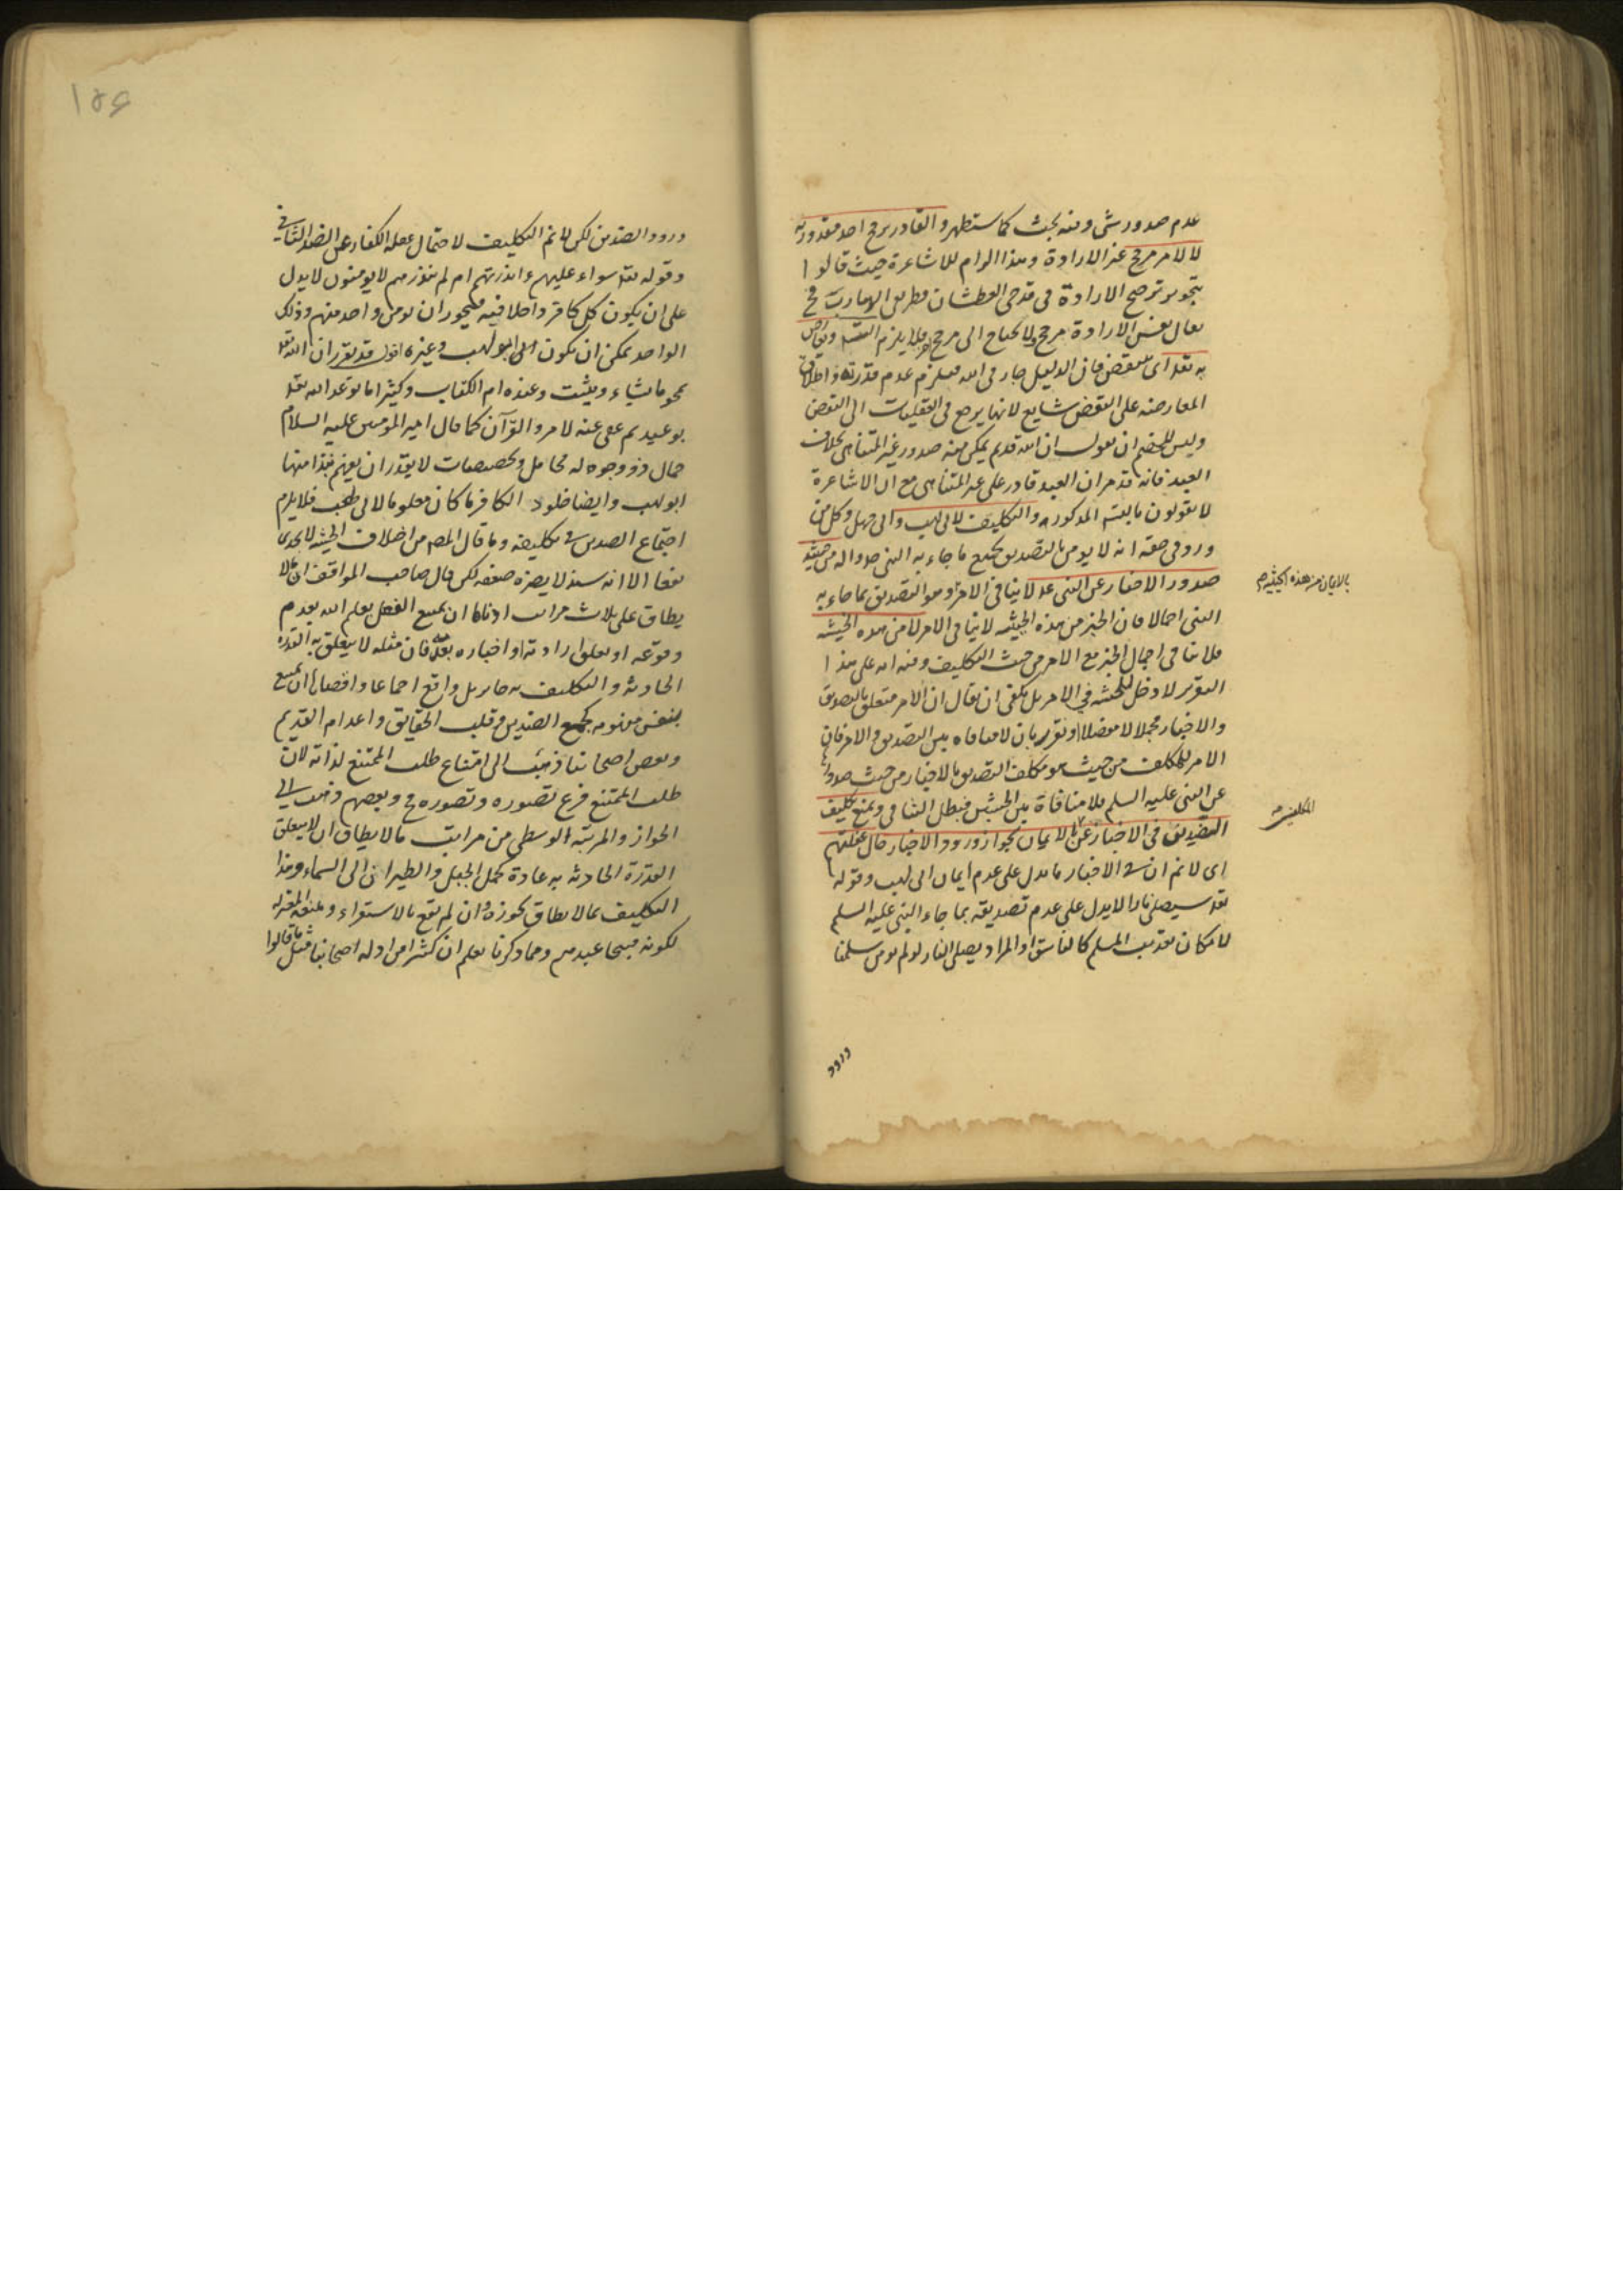 عدم صدور شئ وفيه بحث كما ستظهر والقادر يرجح احد مقدوريه
لا لامر مرجح غير الارادة وهذا الزام للاشاعرة حيث قالوا
بتجويز ترجح الارادة فى قدحى العطشان وطريقى الهارب فح
يقال نفس الارادة مرجح ولا يحتاج الى مرجح اخر فلا يلزم التسـ ونعارض
به تعـ اى ينتقض فان الدليل جار فى الله فيلزم عدم قدرته واطلاق
المعارضة على النقض شايع لانها يرجع فى العقليات الى النقض
وليس للخصم ان يقول ان الله قديم يمكن منه صدور غير المتناهى بخلاف
العبد فانه قد مر ان العبد قادر على غير المتناهى مع ان الاشاعرة
لا يقولون بالتسـ المذكور والتكليف لابى لهب وابى جهل وكل من
ورد فى حقه انه لا يومن بالتصديق بجميع ما جاء به النبى
صدور الاخبار عن النبى لا ينافى الامر وهو التصديق بما جاء به
بالايمان من هذه الحيثية
النبى اجمالا فان الخبر من هذه الحيثية لا ينافى الامر لا من هذه الحيثية
فلا تنافى اجمال الخبر مع الامر من حيث التكليف وفيه انه على هذا
التقرير لا دخل للحيثية فى الامر بل يكفى ان يقال ان الامر متعلق بالتصديق
والاخبار مجملا لا مفصلا او نقرر بان لا منافاة بين التصديق والامر فان
الامر للمكلف من حيث هو مكلف التصديق بالاخبار من حيث صدورها
عن النبى عليه السلم فلا منافاة بين الحيثيتين فبطل التنافى ويمنع تكليف
التصديق فى الاخبار عن الايمان بجواز ورود الاخبار حال غفلتهم
اى لا نم ان فى الاخبار ما يدل على عدم ايمان ابى لهب وقوله
تعـ سيصلى نارا لا يدل على عدم تصديقه بما جاء النبى عليه السلم
لامكان تعذيب المسلم كالفاسق او المراد يصلى النار لو لم يومن سلمنا
ورود
١٥٦
ورود الضدين لكن لا نم التكليف لاحتمال غفلة الكفار عن الضد الثانى
وقوله تعـ سواء عليهم ءانذرتهم ام لم تنذرهم لا يومنون لا يدل
على ان يكون كل كافر داخلا فيه فيجوز ان يومن واحد منهم وذلك
الواحد يمكن ان يكون ابو لهب وغيره اقول قد تقرر ان الله تعـ
يمحو ما يشاء ويثبت وعنده ام الكتاب وكثيرا ما يوعد الله تعـ
بوعيد ثم عفى عنه لامر والقرآن كما قال امير المومنين عليه السلام
حمال ذو وجوه له محامل وتخصيصات لا يقدر ان يفهم نبذا منها
ابو لهب وايضا خلود الكافر ما كان معلوما لابى لهب فلا يلزم
اجتماع الضدين فى تكليفه وما قال المصـ من اختلاف الحيثية لا يجدى
نفعا الا انه سند لا يضره ضعفه لكن قال صاحب المواقف ان ما لا
يطاق على ثلاث مراتب ادناها ان يمتنع الفعل بعلم الله بعدم
وقوعه او تعلق ارادته او اخباره بعدمه فان مثله لا يتعلق به القدرة
الحادثة والتكليف به جايز بل واقع اجماعا واقصاها ان يمتنع
بنفس مفهومه كجمع الضدين وقلب الحقايق واعدام القديم
وبعض اصحابنا ذهب الى امتناع طلب الممتنع لذاته لان
طلب الممتنع فرع تصوره وتصوره مح وبعضهم ذهب الى
الجواز والمرتبة الوسطى من مراتب ما لا يطاق ان لا يتعلق
القدرة الحادثة به عادة كحمل الجبل والطيران الى السماء وهذا
التكليف بما لا يطاق نجوزه وان لم يقع بالاستقراء ومنعه المعتزلة
لكونه قبيحا عندهم ومما ذكرنا يعلم ان كثيرا من ادلة اصحابنا مثل ما قالوا